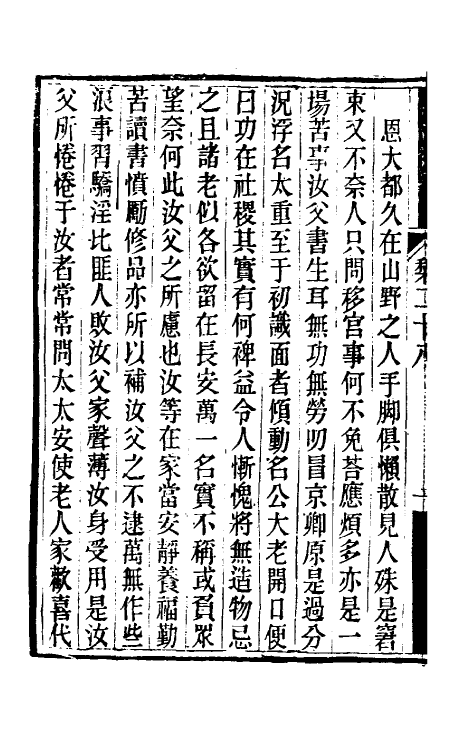 恩大都久在山野之人手脚俱懶散見人殊是窘
束又不奈人只問移官事何不免荅應煩多亦是一
場苦事汝父書生耳無功無勞叨冒京卿原是過分
况浮名太重至于初識面者傾動名公大老開口便
曰功在社稷其實有何裨益令人慚愧將無造物忌
之且諸老似各欲留在長安萬一名實不稱或負眾
望奈何此汝父之所慮也汝等在家當安靜養福勤
苦讀書憤勵修品亦所以補汝父之不逮萬無作些
浪事習驕淫比匪人敗汝父家聲薄汝身受用是汝
父所惓惓于汝者常常問太太安使老人家歡喜代